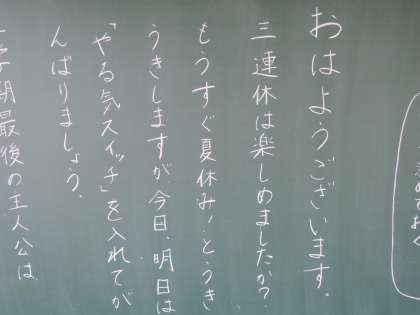 おはようございます。
三連休は楽しめましたか？
もうすぐ夏休み！とうき
うきしますが、今日、明日は
「やる気スイッチ」を入れてが
んばりましょう。
学期最後の主人公は